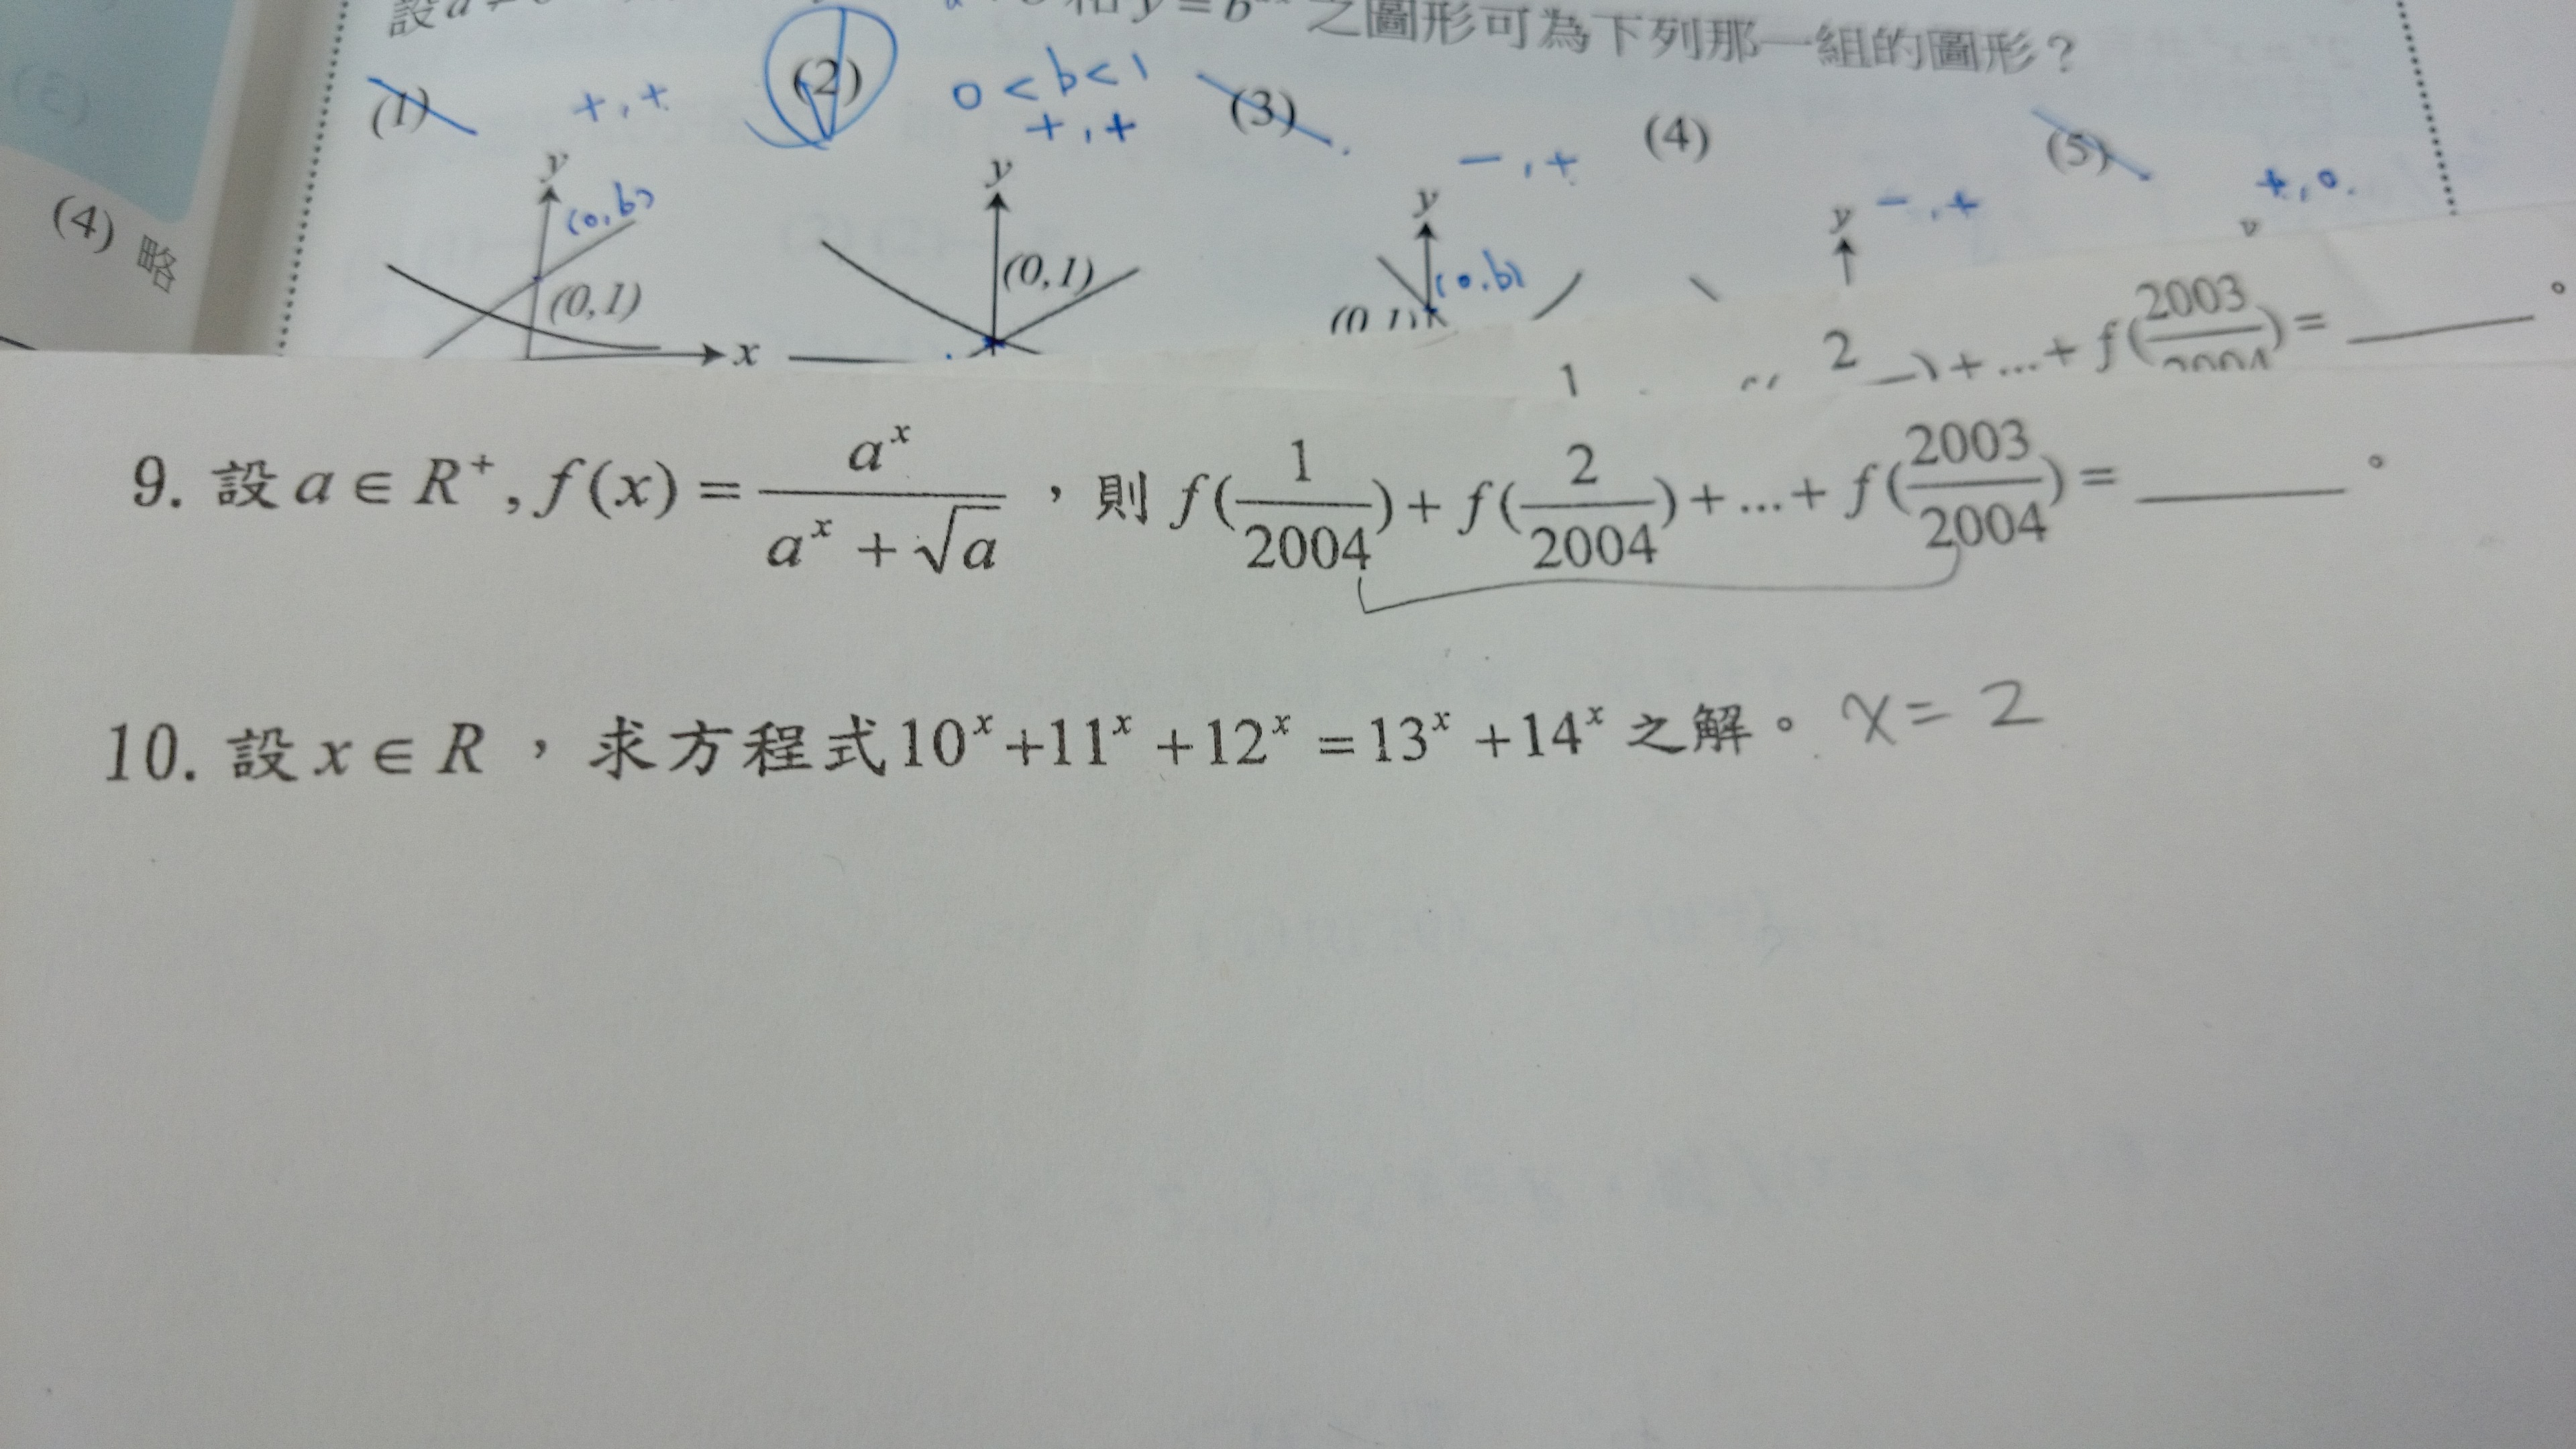 之圖形可為下列那一組的圖形？
(1) +,+ (2) 0<b<1 +,+ (3) -,+ (4) -,+ (5) +,0
(4) 略
y (0,b) (0,1) x
y (0,1)
y (0,b) (0,1)
y
1 2 )+...+f(2003/2004)=______。
9. 設 a∈R⁺, f(x)=aˣ/(aˣ+√a)，則 f(1/2004)+f(2/2004)+...+f(2003/2004)=______。
10. 設 x∈R，求方程式10ˣ+11ˣ+12ˣ=13ˣ+14ˣ之解。x=2